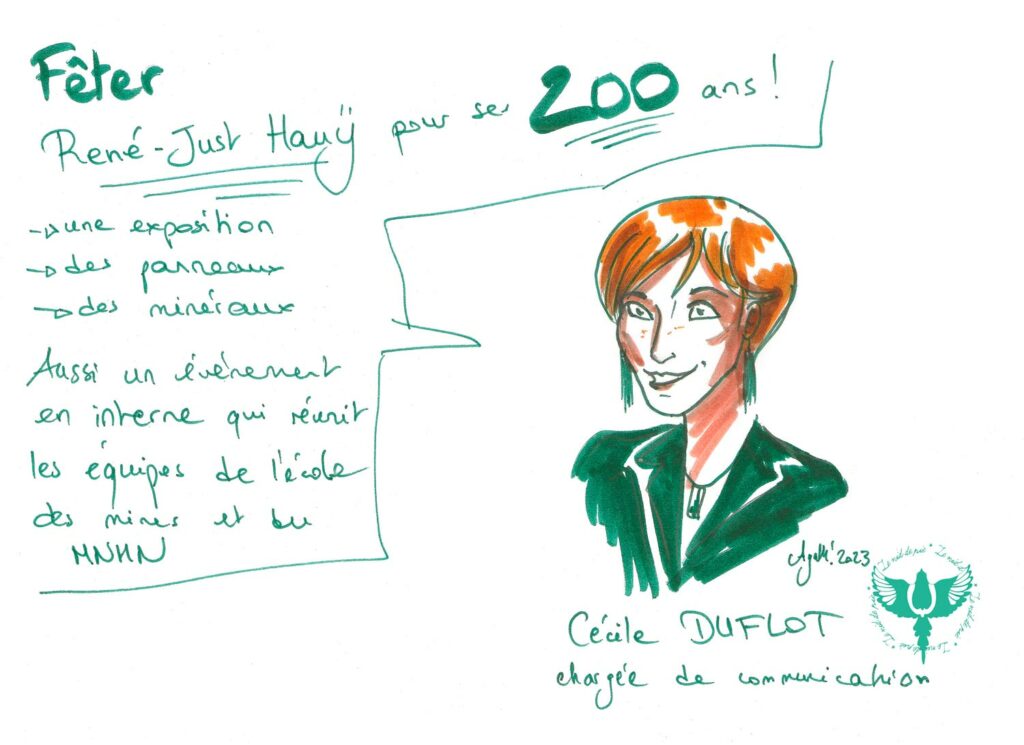 Fêter
René-Just Haüy pour ses 200 ans !
→ une exposition
→ des panneaux
→ des minéraux
Aussi un événement
en interne qui réunit
les équipes de l'école
des mines et du
MNHN
2023
Cécile DUFLOT
chargée de communication